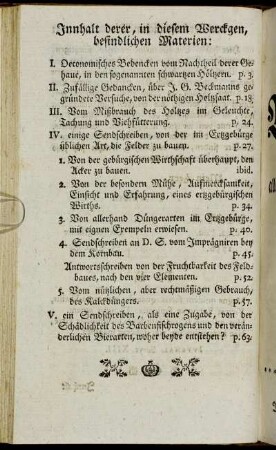 Innhalt derer, in diesem Werckgen,
befindlichen Materien:
I. Oeconomisches Bedencken vom Nachtheil derer Ge-
haue, in den sogenannten schwartzen Höltzern. p. 3.
II. Zufällige Gedancken, über J. G. Beckmanns ge-
gründete Versuche, von der nöthigen Holtzsaat. p. 18.
III. Vom Mißbrauch des Holtzes im Geleuchte,
Dachung und Viehfütterung. p. 24.
IV. einige Sendschreiben, von der im Ertzgebürge
üblichen Art, die Felder zu bauen. p. 27.
1. Von der gebürgischen Wirthschaft überhaupt, den
Acker zu bauen. ibid.
2. Von der besondern Mühe, Aufmercksamkeit,
Einsicht und Erfahrung, eines ertzgebürgischen
Wirths. p. 34.
3. Von allerhand Düngerarten im Ertzgebürge,
mit eignen Exempeln erwiesen. p. 40.
4. Sendschreiben an D. S. vom Imprägniren bey
dem Kornbau. p. 45.
Antwortsschreiben von der Fruchtbarkeit des Feld-
baues, nach den vier Elementen. p. 52.
5. Vom nützlichen, aber rechtmäßigen Gebrauch,
des Kalckdüngers. p. 57.
V. ein Sendschreiben, als eine Zugabe, von der
Schädlichkeit des Barbenfischrogens und den verän-
derlichen Bierarten, woher beyde entstehen? p. 63.